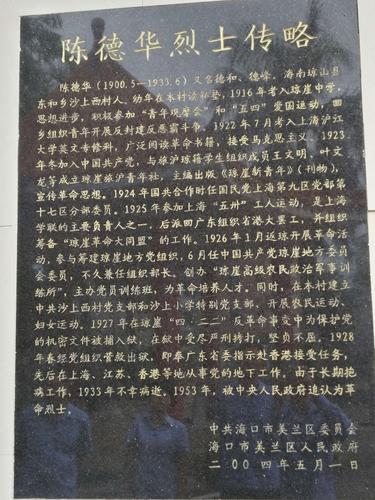 陈德华烈士传略
陈德华(1900.5—1933.6)又名德和、德峰,海南琼山县
东和乡沙上西村人。幼年在本村读私塾,1916年考入琼崖中学,
思想进步,积极参加“青年观摩会”和“五四”爱国运动,回
乡组织青年开展反封建反恶霸斗争。1922年7月考入上海沪江
大学英文专修科,广泛阅读革命书籍,接受马克思主义。1923
年冬加入中国共产党,与旅沪琼籍学生组织成员王文明、叶文
龙等成立琼崖旅沪青年社,主编出版《琼崖新青年》(刊物),
宣传革命思想。1924年国共合作时任国民党上海第九区党部第
十七区分部委员。1925年参加上海“五卅”工人运动,是上海
学联的主要负责人之一,后派回广东组织省港大罢工,并组织
筹备“琼崖革命大同盟”的工作。1926年1月返琼开展革命活
动,参与筹建琼崖地方党组织,6月任中国共产党琼崖地方委员
会委员,不久兼任组织部长。创办“琼崖高级农民政治军事训
练所”,主办党员训练班,为革命培养人才。同时,在本村建立
中共沙上西村党支部和沙上小学特别党支部,开展农民运动、
妇女运动。1927年在琼崖“四·二二”反革命事变中为保护党
的机密文件被捕入狱,在狱中受尽严刑拷打,坚贞不屈。1928
年春经党组织营救出狱,即奉广东省委指示赴香港接受任务,
先后在上海、江苏、香港等地从事党的地下工作。由于长期抱
病工作,1933年不幸病逝。1953年,被中央人民政府追认为革
命烈士。
中共海口市美兰区委员会
海口市美兰区人民政府
二00四年五月一日